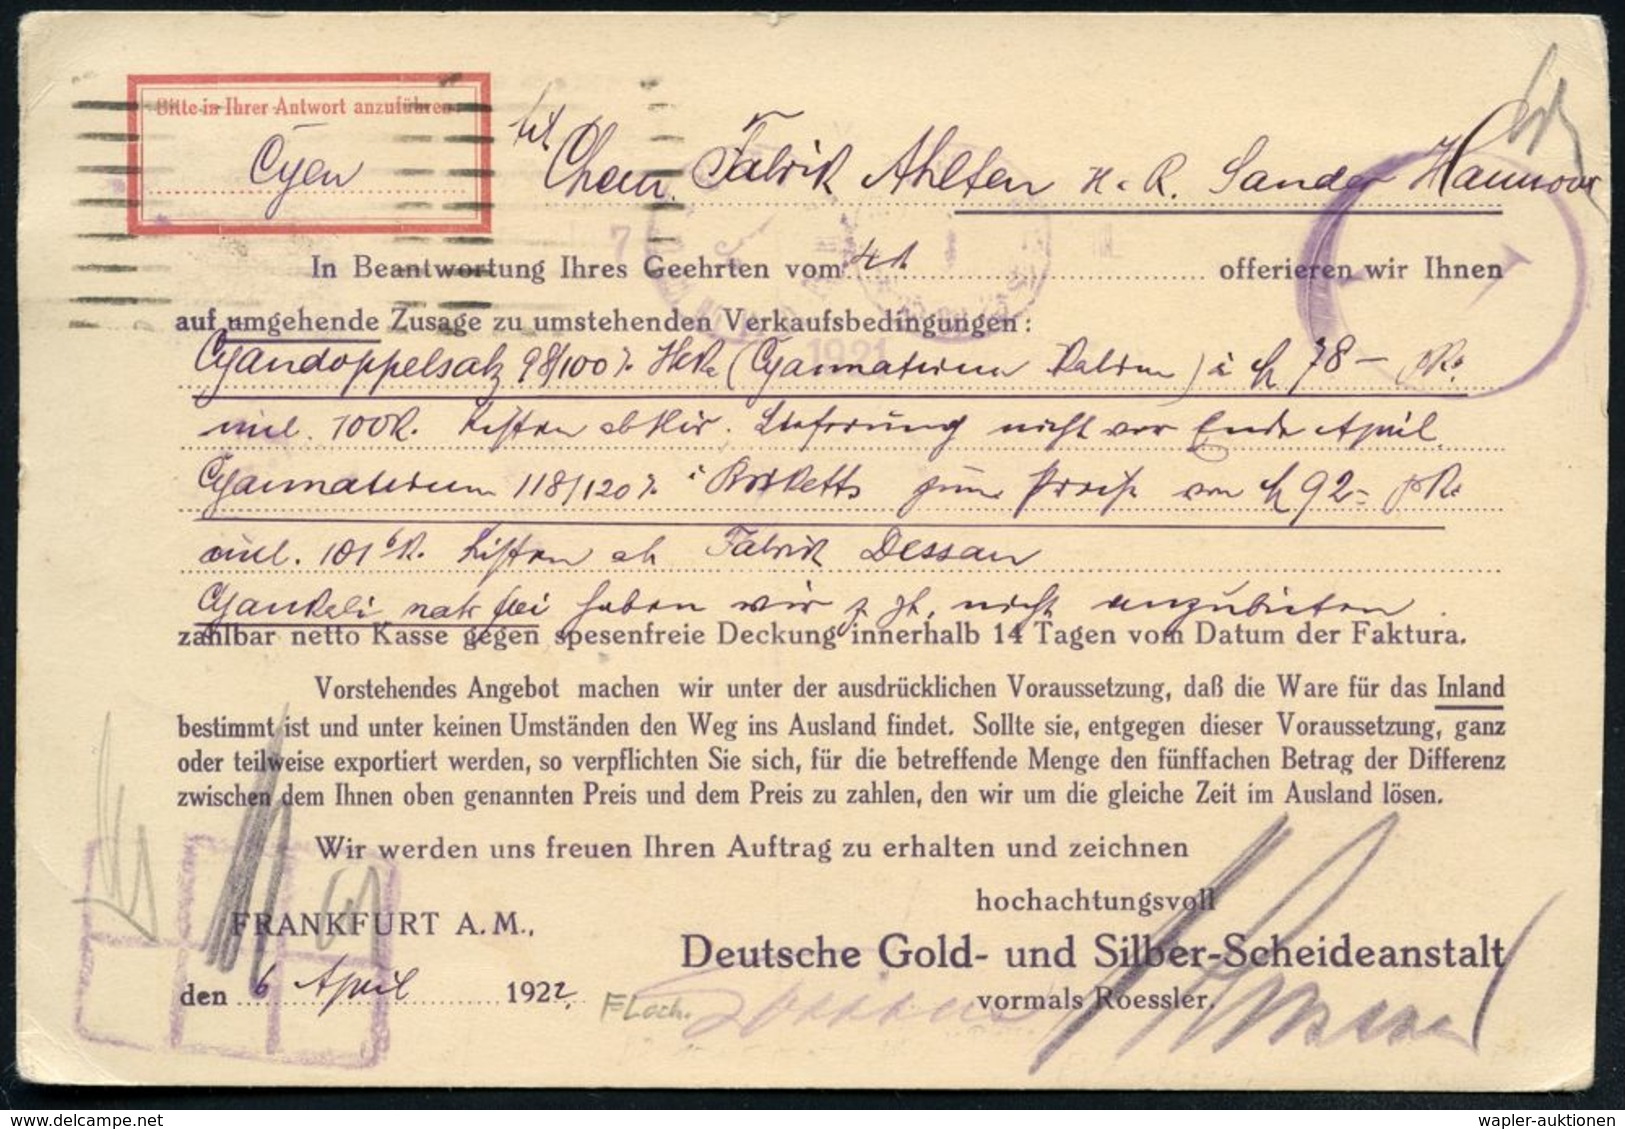 Bitte in Ihrer Antwort anzuführen
Cyan
Chem. Fabrik Ahlten H. R. Sander Hannover
In Beantwortung Ihres Geehrten vom offerieren wir Ihnen
auf umgehende Zusage zu umstehenden Verkaufsbedingungen:
1921
Cyandoppelsalz 98/100% (Cyannatrium Kalium) à 78 —
incl. 100 K. Kisten ab hier. Lieferung nicht vor Ende April.
Cyannatrium 118/120% i Briketts zum Preise von 92 =
incl. Kisten ab Fabrik Dessau
Cyankali natr frei haben wir z. Zt. nicht anzubieten.
zahlbar netto Kasse gegen spesenfreie Deckung innerhalb 14 Tagen vom Datum der Faktura.
Vorstehendes Angebot machen wir unter der ausdrücklichen Voraussetzung, daß die Ware für das Inland
bestimmt ist und unter keinen Umständen den Weg ins Ausland findet. Sollte sie, entgegen dieser Voraussetzung, ganz
oder teilweise exportiert werden, so verpflichten Sie sich, für die betreffende Menge den fünffachen Betrag der Differenz
zwischen dem Ihnen oben genannten Preis und dem Preis zu zahlen, den wir um die gleiche Zeit im Ausland lösen.
Wir werden uns freuen Ihren Auftrag zu erhalten und zeichnen
hochachtungsvoll
FRANKFURT A. M.,
Deutsche Gold- und Silber-Scheideanstalt
den 6 April 1922.
vormals Roessler.
wapler-auktionen